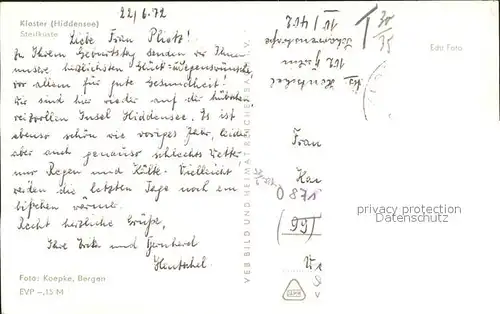 Kloster (Hiddensee)
Steilküste
22/6.72
Liebe Frau Plietz!
Zu Ihrem Geburtstag senden wir Ihnen
unsre herzlichsten Glück- u. Segenswünsche,
vor allem für gute Gesundheit!
Wir sind hier wieder auf der hübschen,
reizvollen Insel Hiddensee. Es ist
ebenso schön wie voriges Jahr, leider
aber auch genauso schlechtes Wetter
nur Regen und Kälte. Vielleicht
werden die letzten Tage noch ein
bißchen wärmer.
Recht herzliche Grüße,
Ihre Erika und Gerhard
Hentschel.
Foto: Koepke, Bergen
EVP -,15 M
VEB BILD UND HEIMAT REICHENBACH I. V.
Edit Foto
Hentschel
10/402
T 30/35
Frau
0871
(99)
privacy protection
Datenschutz